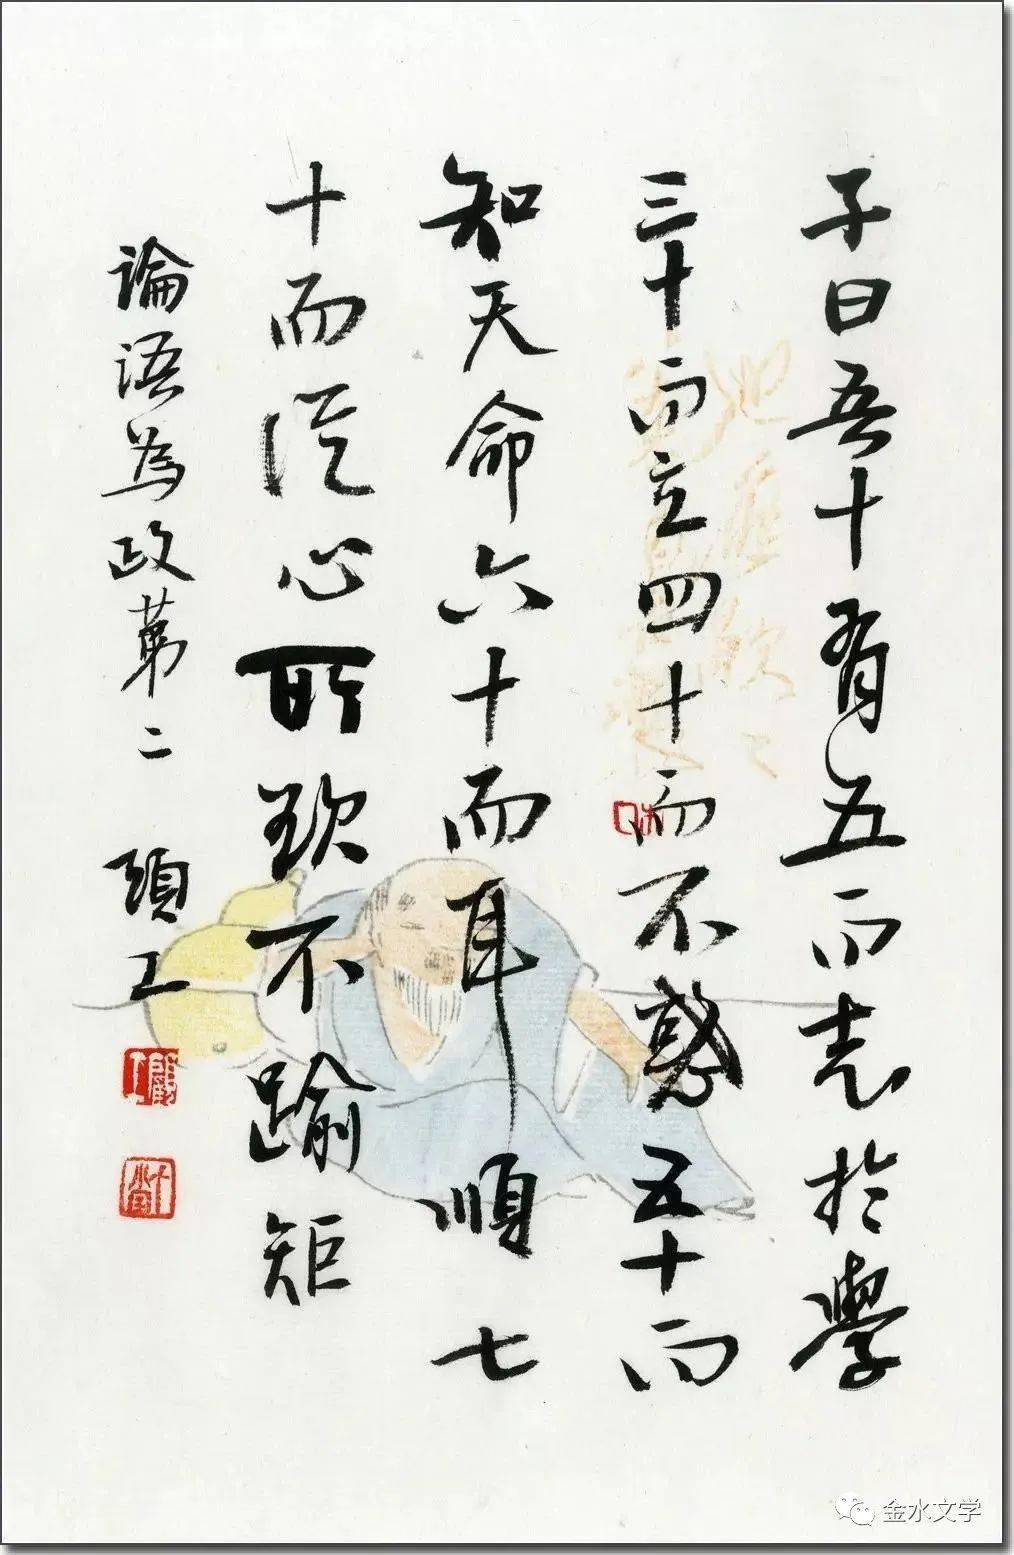 子曰吾十有五而志於學
三十而立四十而不惑五十而
知天命六十而耳順七
十而從心所欲不踰矩
論語為政第二 頊工
金水文学